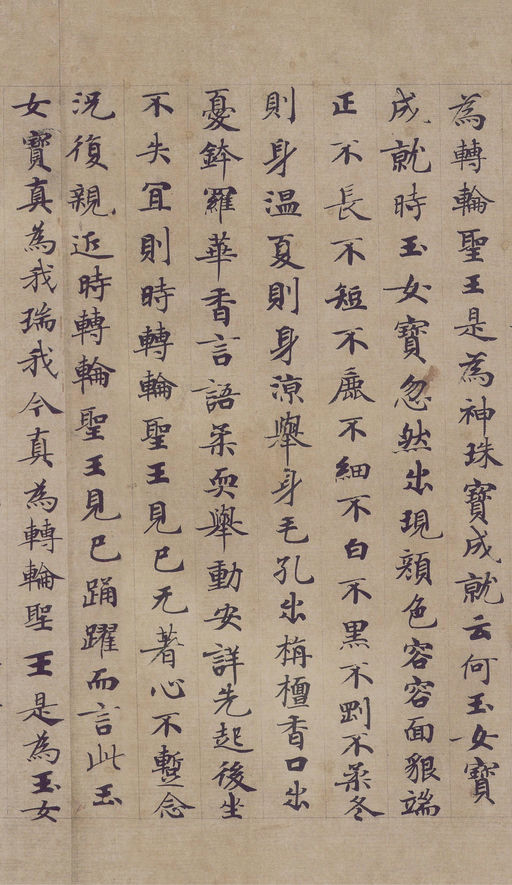 為轉輪聖王是為神珠寶成就云何玉女寶
成就時玉女寶忽然出現顏色容容面貇端
正不長不短不麁不細不白不黑不剛不柔冬
則身温夏則身涼舉身毛孔出栴檀香口出
憂鉢羅華香言語柔耎舉動安詳先起後坐
不失冝則時轉輪聖王見已无著心不蹔念
況復親近時轉輪聖王見已踊躍而言此玉
女寶真為我瑞我今真為轉輪聖王是為玉女